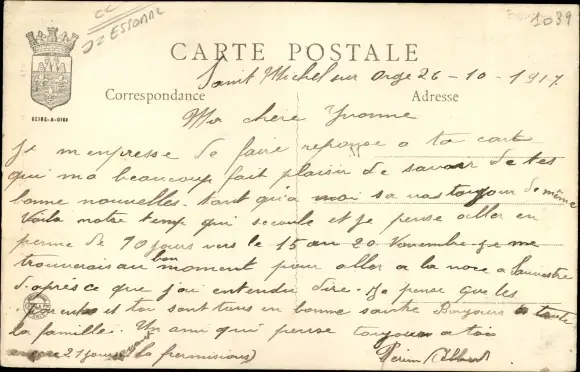 CC
DZ ESSONNE
1039
CARTE POSTALE
Saint Michel sur Orge 26-10-1917
Correspondance
Adresse
SEINE-&-OISE
Ma chere Yvonne
Je m'enpresse de faire reponse a ta carte
qui ma beaucoup fait plaisir de savoir de tes
bonne nouvelles. tant qu'a moi sa va toujour de même
Voila notre temp qui secoule et je pense aller en
perme de 10 jours vers le 15 au 20 Novembre je me
trouverais au bon moment pour aller a la noce a
d'apres ce que j'ai entendu dire. Je pense que tes
et toi sont tous en bonne sante Bonjour a toute
la famille. Un ami qui pense toujours a toi
encore 21 jours (la permission)